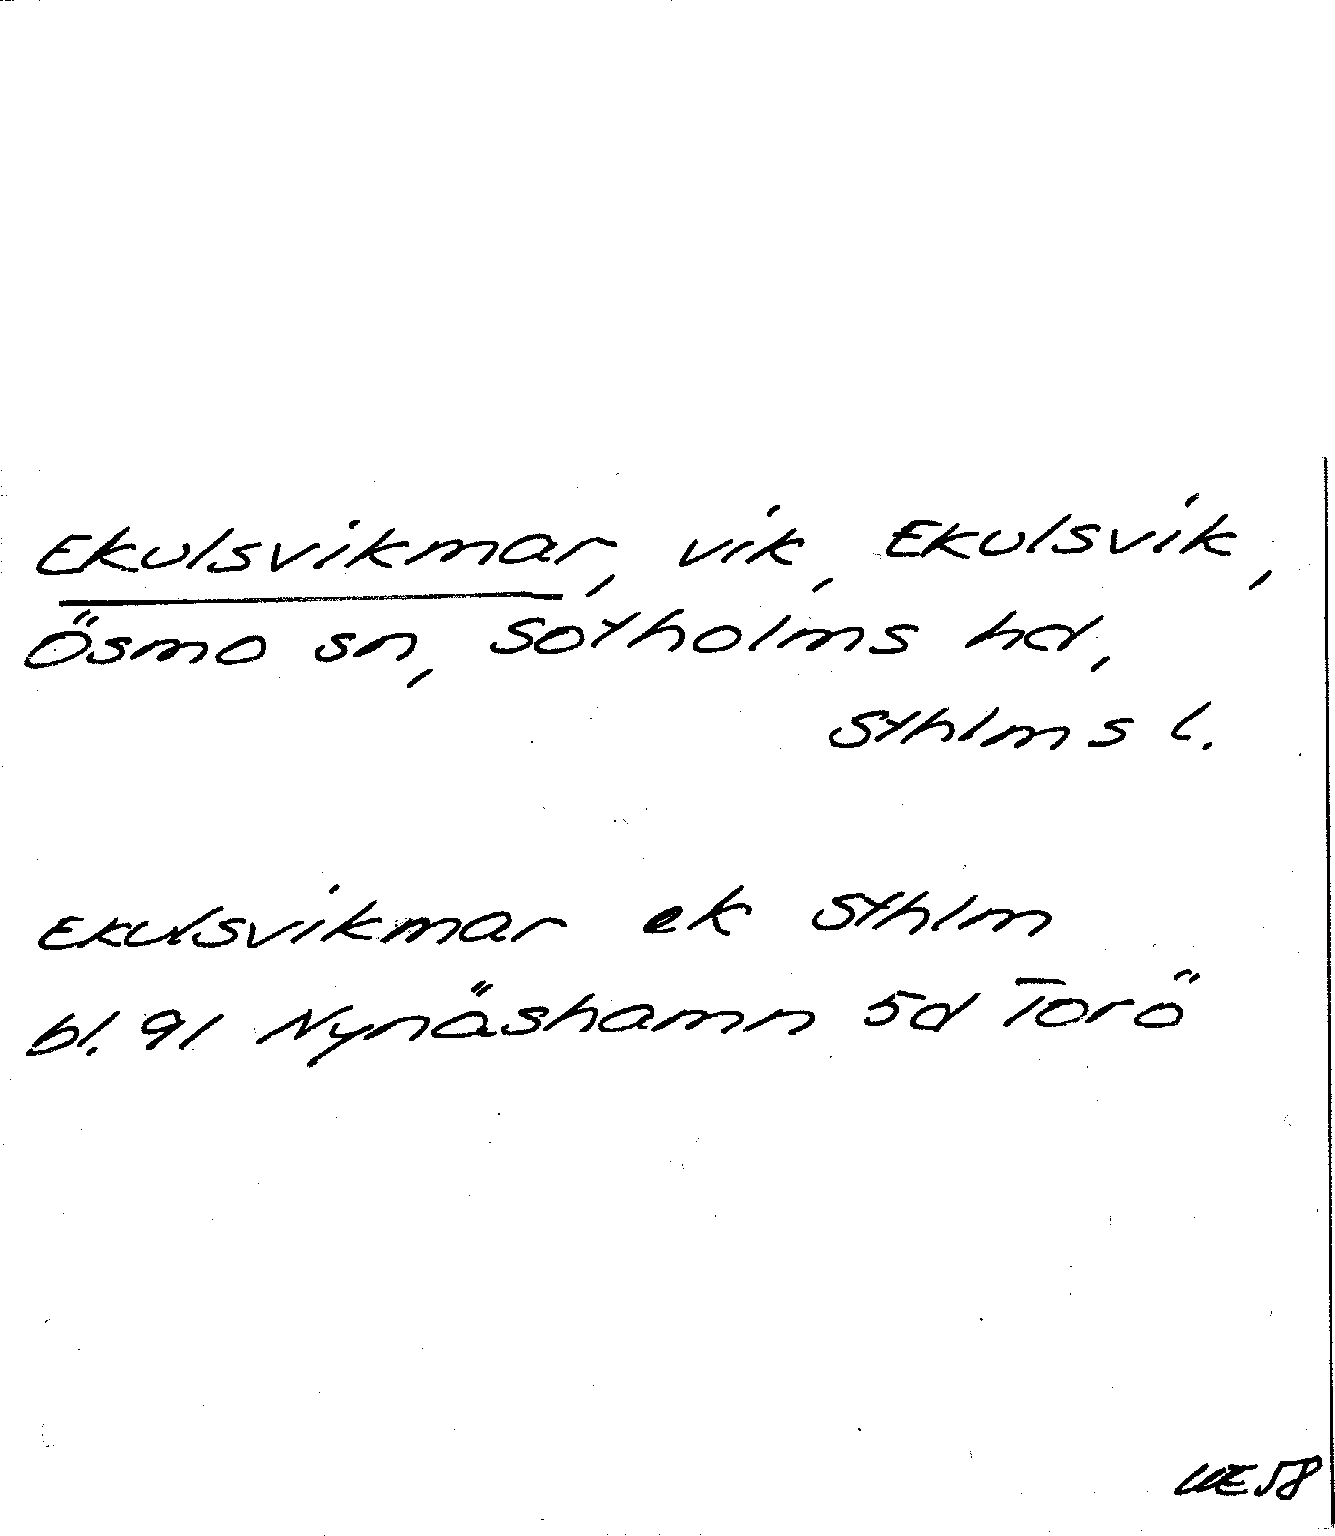 Ekulsvikmar, vik, Ekulsvik,
Ösmo sn, Sotholms hd,
Sthlms l.
Ekulsvikmar ek Sthlm
bl. 91 Nynäshamn 5d Torö
WE 58